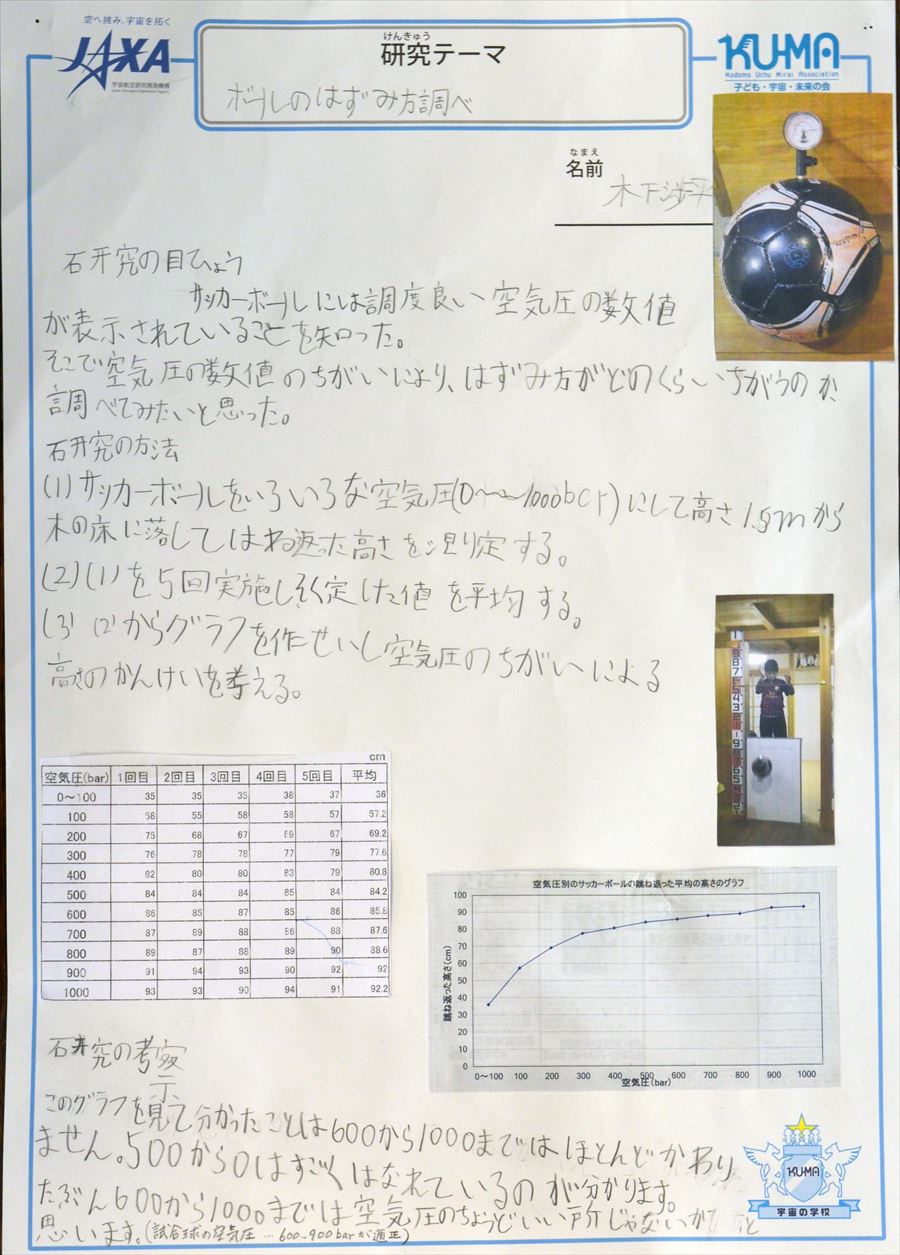 空へ挑み、宇宙を拓く
JAXA
宇宙航空研究開発機構
Japan Aerospace Exploration Agency
けんきゅう
研究テーマ
ボールのはずみ方調べ
KU-MA
Kodomo Uchu Mirai Association
子ども・宇宙・未来の会
なまえ
名前
木下
研究の目ひょう
サッカーボールには調度良い空気圧の数値
が表示されていることを知った。
そこで空気圧の数値のちがいにより、はずみ方がどのくらいちがうのか
調べてみたいと思った。
研究の方法
(1)サッカーボールをいろいろな空気圧(0〜1000bar)にして高さ1.5mから
木の床に落してはね返った高さを測定する。
(2)(1)を5回実施しそく定した値を平均する。
(3)(2)からグラフを作せいし空気圧のちがいによる
高さのかんけいを考える。
cm
空気圧(bar) 1回目 2回目 3回目 4回目 5回目 平均
0〜100 35 35 35 38 37 36
100 58 55 58 58 57 57.2
200 75 68 67 69 67 69.2
300 76 78 78 77 79 77.6
400 82 80 80 83 79 80.8
500 84 84 84 85 84 84.2
600 86 85 87 85 86 85.8
700 87 89 88 86 88 87.6
800 89 87 88 89 90 88.6
900 91 94 93 90 92 92
1000 93 93 90 94 91 92.2
空気圧別のサッカーボールの跳ね返った平均の高さのグラフ
跳ね返った高さ(cm)
100
90
80
70
60
50
40
30
20
10
0
0〜100 100 200 300 400 500 600 700 800 900 1000
空気圧(bar)
研究の考察
このグラフを見て分かったことは600から1000まではほとんどかわり
ません。500から0はすごくはなれているのが分かります。
たぶん600から1000までは空気圧のちょうどいい所じゃないかなと
思います。(試合球の空気圧…600〜900barが適正)
KU-MA
宇宙の学校